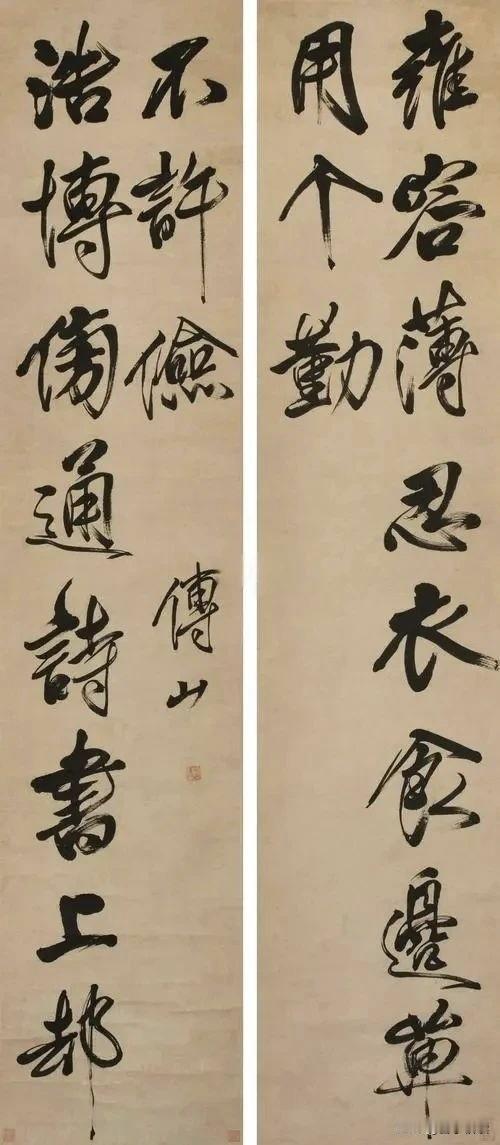 雍容薄忍衣食邊單
用个勤
浩博傍通詩書上却
不許儉
傅山